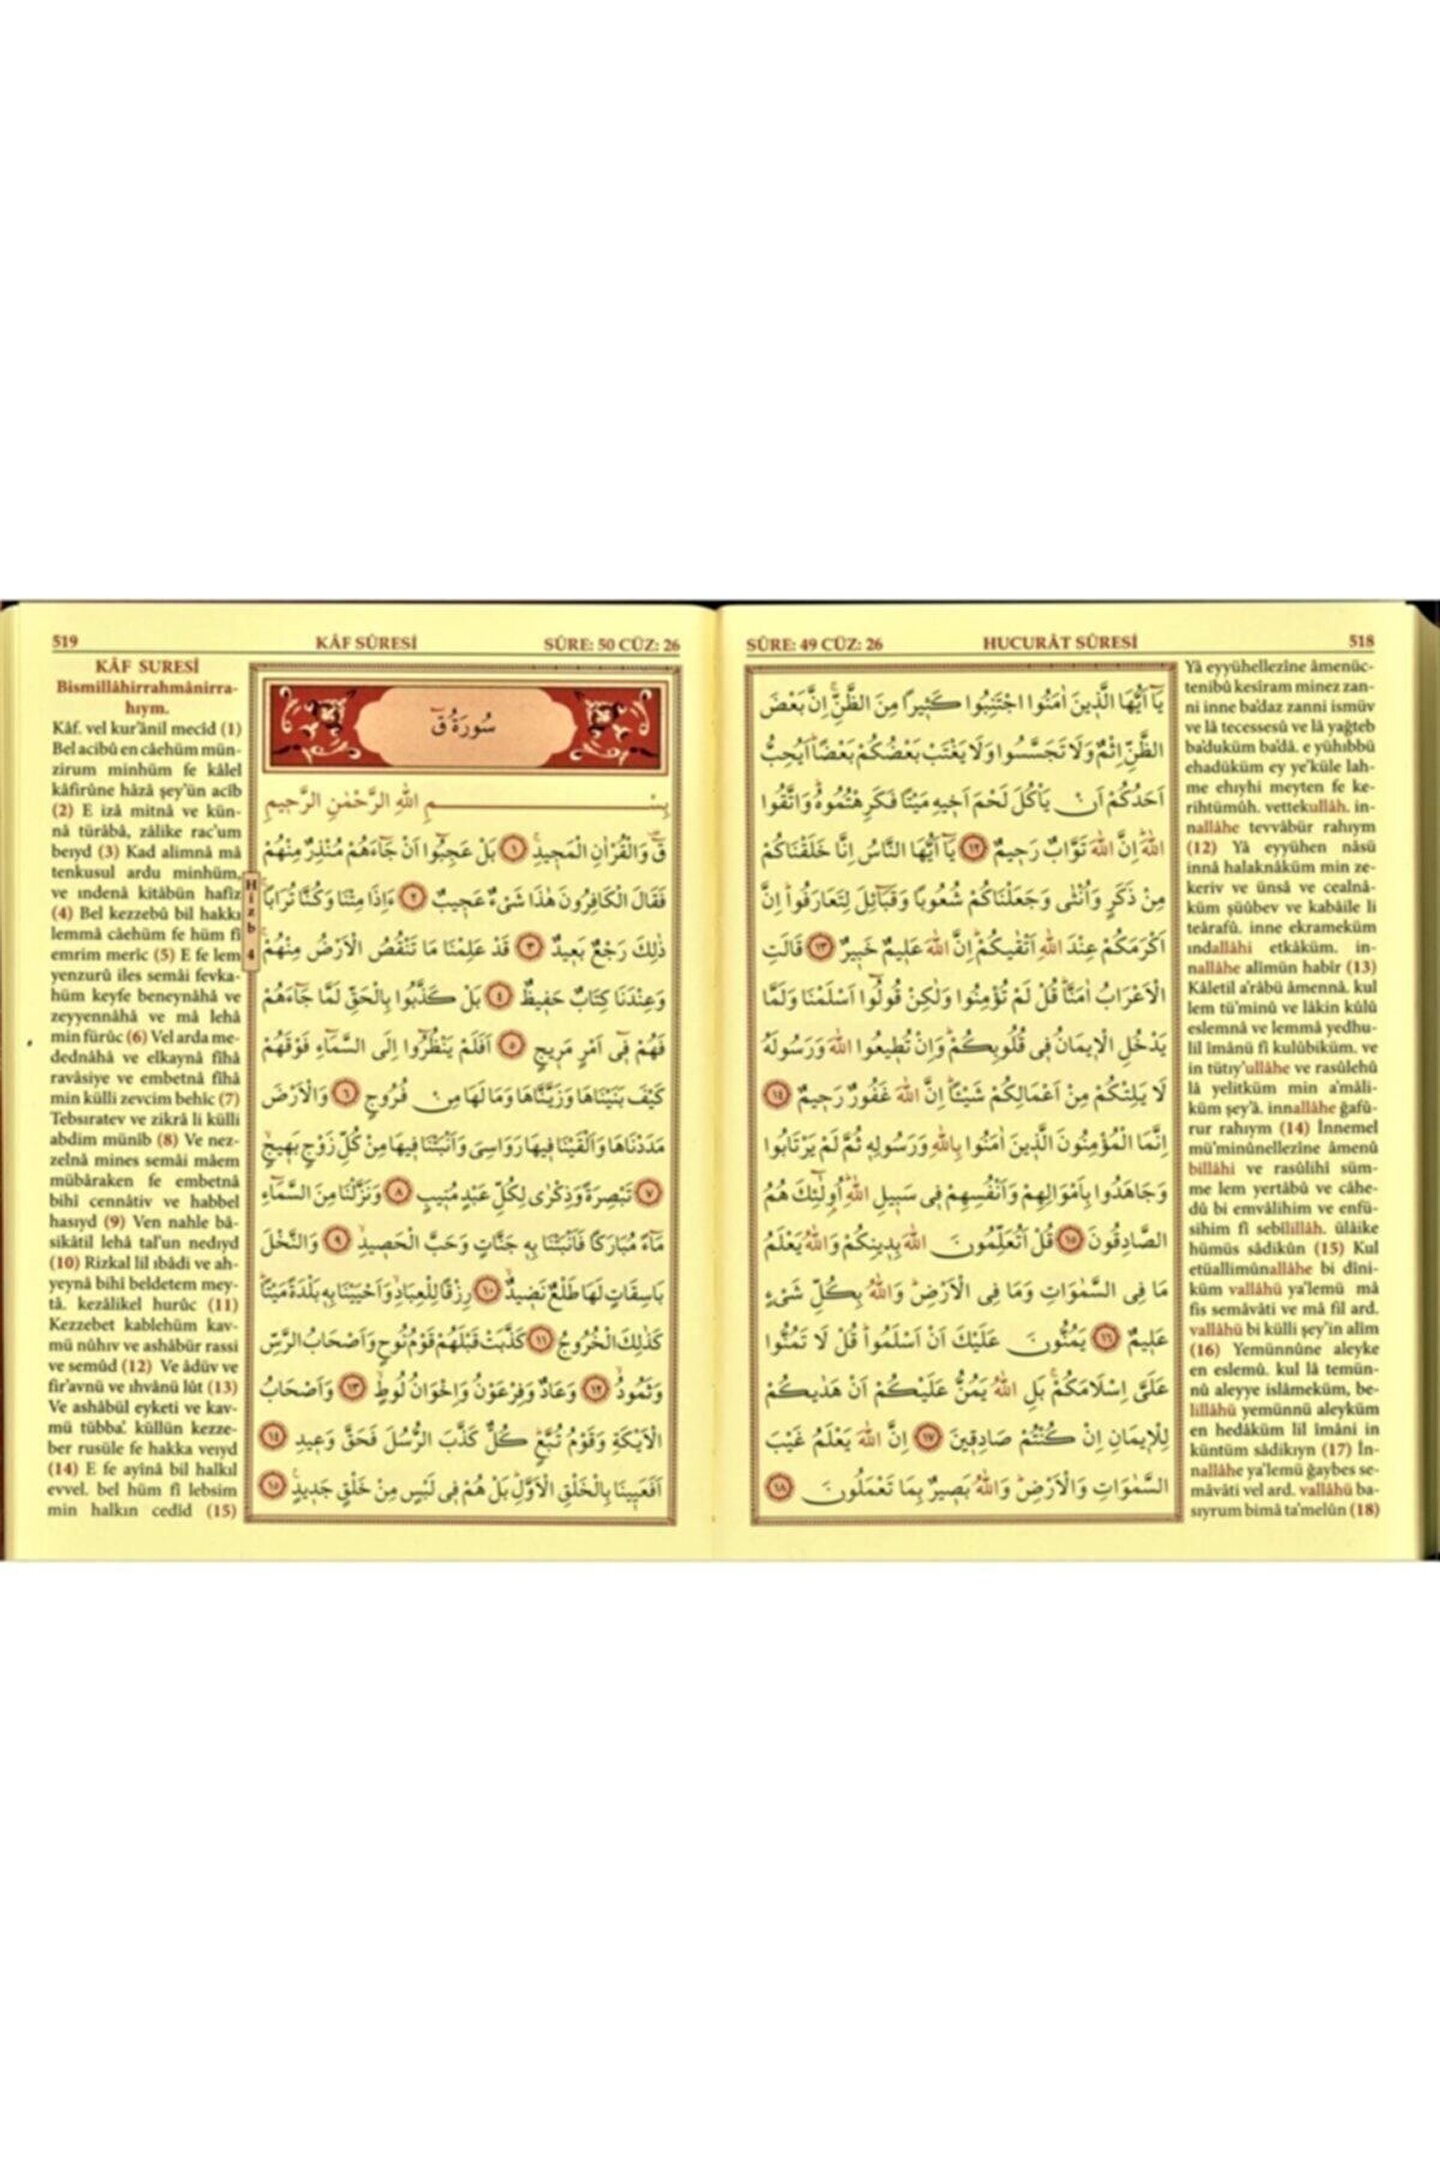 SÛRE: 49 CÜZ: 26
HUCURÂT SÛRESİ
518
يَٓا اَيُّهَا الَّذ۪ينَ اٰمَنُوا اجْتَنِبُوا كَث۪يرًا مِنَ الظَّنِّۘ اِنَّ بَعْضَ
الظَّنِّ اِثْمٌ وَلَا تَجَسَّسُوا وَلَا يَغْتَبْ بَعْضُكُمْ بَعْضًاۜ اَيُحِبُّ
اَحَدُكُمْ اَنْ يَأْكُلَ لَحْمَ اَخ۪يهِ مَيْتًا فَكَرِهْتُمُوهُۜ وَاتَّقُوا
اللّٰهَۜ اِنَّ اللّٰهَ تَوَّابٌ رَح۪يمٌ ﴿١٢﴾ يَٓا اَيُّهَا النَّاسُ اِنَّا خَلَقْنَاكُمْ
مِنْ ذَكَرٍ وَاُنْثٰى وَجَعَلْنَاكُمْ شُعُوبًا وَقَبَٓائِلَ لِتَعَارَفُواۜ اِنَّ
اَكْرَمَكُمْ عِنْدَ اللّٰهِ اَتْقٰيكُمْۜ اِنَّ اللّٰهَ عَل۪يمٌ خَب۪يرٌ ﴿١٣﴾ قَالَتِ
الْاَعْرَابُ اٰمَنَّاۜ قُلْ لَمْ تُؤْمِنُوا وَلٰكِنْ قُولُٓوا اَسْلَمْنَا وَلَمَّا
يَدْخُلِ الْا۪يمَانُ ف۪ي قُلُوبِكُمْۜ وَاِنْ تُط۪يعُوا اللّٰهَ وَرَسُولَهُ
لَا يَلِتْكُمْ مِنْ اَعْمَالِكُمْ شَيْـًٔاۜ اِنَّ اللّٰهَ غَفُورٌ رَح۪يمٌ ﴿١٤﴾
اِنَّمَا الْمُؤْمِنُونَ الَّذ۪ينَ اٰمَنُوا بِاللّٰهِ وَرَسُولِه۪ ثُمَّ لَمْ يَرْتَابُوا
وَجَاهَدُوا بِاَمْوَالِهِمْ وَاَنْفُسِهِمْ ف۪ي سَب۪يلِ اللّٰهِۜ اُو۬لٰٓئِكَ هُمُ
الصَّادِقُونَ ﴿١٥﴾ قُلْ اَتُعَلِّمُونَ اللّٰهَ بِد۪ينِكُمْ وَاللّٰهُ يَعْلَمُ
مَا فِي السَّمٰوَاتِ وَمَا فِي الْاَرْضِۜ وَاللّٰهُ بِكُلِّ شَيْءٍ
عَل۪يمٌ ﴿١٦﴾ يَمُنُّونَ عَلَيْكَ اَنْ اَسْلَمُواۜ قُلْ لَا تَمُنُّوا
عَلَيَّ اِسْلَامَكُمْۚ بَلِ اللّٰهُ يَمُنُّ عَلَيْكُمْ اَنْ هَدٰيكُمْ
لِلْا۪يمَانِ اِنْ كُنْتُمْ صَادِق۪ينَ ﴿١٧﴾ اِنَّ اللّٰهَ يَعْلَمُ غَيْبَ
السَّمٰوَاتِ وَالْاَرْضِۜ وَاللّٰهُ بَص۪يرٌ بِمَا تَعْمَلُونَ ﴿١٨﴾
Yâ eyyühellezîne âmenüc-
tenibû kesîram minez zan-
ni inne ba'daz zanni ismüv
ve lâ tecessesû ve lâ yağteb
ba'duküm ba'dâ. e yühıbbü
ehadüküm ey ye'küle lah-
me ehıyhi meyten fe ke-
rihtümûh. vettekullâh. in-
nallâhe tevvâbür rahıym
(12) Yâ eyyühen nâsü
innâ halaknâküm min ze-
keriv ve ünsâ ve cealnâ-
küm şüûbev ve kabâile li
teârafû. inne ekrameküm
ındallâhi etkâküm. in-
nallâhe alîmün habîr (13)
Kâletil a'râbü âmennâ. kul
lem tü'minû ve lâkin kûlû
eslemnâ ve lemmâ yedhu-
lil îmânü fî kulûbiküm. ve
in tütıy'ullâhe ve rasûlehû
lâ yelitküm min a'mâli-
küm şey'â. innallâhe ğafû-
rur rahıym (14) İnnemel
mü'minûnellezîne âmenû
billâhi ve rasûlihî süm-
me lem yertâbû ve câhe-
dû bi emvâlihim ve enfü-
sihim fî sebîlillâh. ülâike
hümüs sâdikûn (15) Kul
etüallimûnallâhe bi dîni-
küm vallâhü ya'lemü mâ
fis semâvâti ve mâ fil ard.
vallâhü bi külli şey'in alîm
(16) Yemünnûne aleyke
en eslemû. kul lâ temün-
nû aleyye islâmeküm, be-
lillâhü yemünnü aleyküm
en hedâküm lil îmâni in
küntüm sâdikıyn (17) İn-
nallâhe ya'lemü ğaybes se-
mâvâti vel ard. vallâhü ba-
sıyrum bimâ ta'melûn (18)
519
KÂF SÛRESİ
SÛRE: 50 CÜZ: 26
سُورَةُ قٓ
بِسْمِ اللّٰهِ الرَّحْمٰنِ الرَّح۪يمِ
قٓ۠ وَالْقُرْاٰنِ الْمَج۪يدِۚ ﴿١﴾ بَلْ عَجِبُٓوا اَنْ جَٓاءَهُمْ مُنْذِرٌ مِنْهُمْ
فَقَالَ الْكَافِرُونَ هٰذَا شَيْءٌ عَج۪يبٌ ﴿٢﴾ ءَاِذَا مِتْنَا وَكُنَّا تُرَابًاۚ
ذٰلِكَ رَجْعٌ بَع۪يدٌ ﴿٣﴾ قَدْ عَلِمْنَا مَا تَنْقُصُ الْاَرْضُ مِنْهُمْۚ
وَعِنْدَنَا كِتَابٌ حَف۪يظٌ ﴿٤﴾ بَلْ كَذَّبُوا بِالْحَقِّ لَمَّا جَٓاءَهُمْ
فَهُمْ ف۪ٓي اَمْرٍ مَر۪يجٍ ﴿٥﴾ اَفَلَمْ يَنْظُرُٓوا اِلَى السَّمَٓاءِ فَوْقَهُمْ
كَيْفَ بَنَيْنَاهَا وَزَيَّنَّاهَا وَمَا لَهَا مِنْ فُرُوجٍ ﴿٦﴾ وَالْاَرْضَ
مَدَدْنَاهَا وَاَلْقَيْنَا ف۪يهَا رَوَاسِيَ وَاَنْبَتْنَا ف۪يهَا مِنْ كُلِّ زَوْجٍ بَه۪يجٍۙ
﴿٧﴾ تَبْصِرَةً وَذِكْرٰى لِكُلِّ عَبْدٍ مُن۪يبٍ ﴿٨﴾ وَنَزَّلْنَا مِنَ السَّمَٓاءِ
مَٓاءً مُبَارَكًا فَاَنْبَتْنَا بِه۪ جَنَّاتٍ وَحَبَّ الْحَص۪يدِۙ ﴿٩﴾ وَالنَّخْلَ
بَاسِقَاتٍ لَهَا طَلْعٌ نَض۪يدٌۙ ﴿١٠﴾ رِزْقًا لِلْعِبَادِۙ وَاَحْيَيْنَا بِه۪ بَلْدَةً مَيْتًاۜ
كَذٰلِكَ الْخُرُوجُ ﴿١١﴾ كَذَّبَتْ قَبْلَهُمْ قَوْمُ نُوحٍ وَاَصْحَابُ الرَّسِّ
وَثَمُودُۙ ﴿١٢﴾ وَعَادٌ وَفِرْعَوْنُ وَاِخْوَانُ لُوطٍۙ ﴿١٣﴾ وَاَصْحَابُ
الْاَيْكَةِ وَقَوْمُ تُبَّعٍۜ كُلٌّ كَذَّبَ الرُّسُلَ فَحَقَّ وَع۪يدِ ﴿١٤﴾
اَفَعَي۪ينَا بِالْخَلْقِ الْاَوَّلِۜ بَلْ هُمْ ف۪ي لَبْسٍ مِنْ خَلْقٍ جَد۪يدٍ۟ ﴿١٥﴾
Hizb 4
KÂF SURESİ
Bismillâhirrahmânirra-
hıym.
Kâf. vel kur'ânil mecîd (1)
Bel acibû en câehüm mün-
zirum minhüm fe kâlel
kâfirûne hâzâ şey'ün acîb
(2) E izâ mitnâ ve kün-
nâ türâbâ, zâlike rac'um
beıyd (3) Kad alimnâ mâ
tenkusul ardu minhüm,
ve ındenâ kitâbün hafîz
(4) Bel kezzebû bil hakkı
lemmâ câehüm fe hüm fî
emrim merîc (5) E fe lem
yenzurû iles semâi fevka-
hüm keyfe beneynâhâ ve
zeyyennâhâ ve mâ lehâ
min fürûc (6) Vel arda me-
dednâhâ ve elkaynâ fîhâ
ravâsiye ve embetnâ fîhâ
min külli zevcim behîc (7)
Tebsıratev ve zikrâ li külli
abdim münîb (8) Ve nez-
zelnâ mines semâi mâem
mübâraken fe embetnâ
bihî cennâtiv ve habbel
hasıyd (9) Ven nahle bâ-
sikâtil lehâ tal'un nedıyd
(10) Rizkal lil ıbâdi ve ah-
yeynâ bihî beldetem mey-
tâ. kezâlikel hurûc (11)
Kezzebet kablehüm kav-
mü nûhıv ve ashâbür rassi
ve semûd (12) Ve âdüv ve
fir'avnü ve ıhvânü lût (13)
Ve ashâbül eyketi ve kav-
mü tübba'. küllün kezze-
ber rusüle fe hakka veıyd
(14) E fe ayînâ bil halkıl
evvel. bel hüm fî lebsim
min halkın cedîd (15)